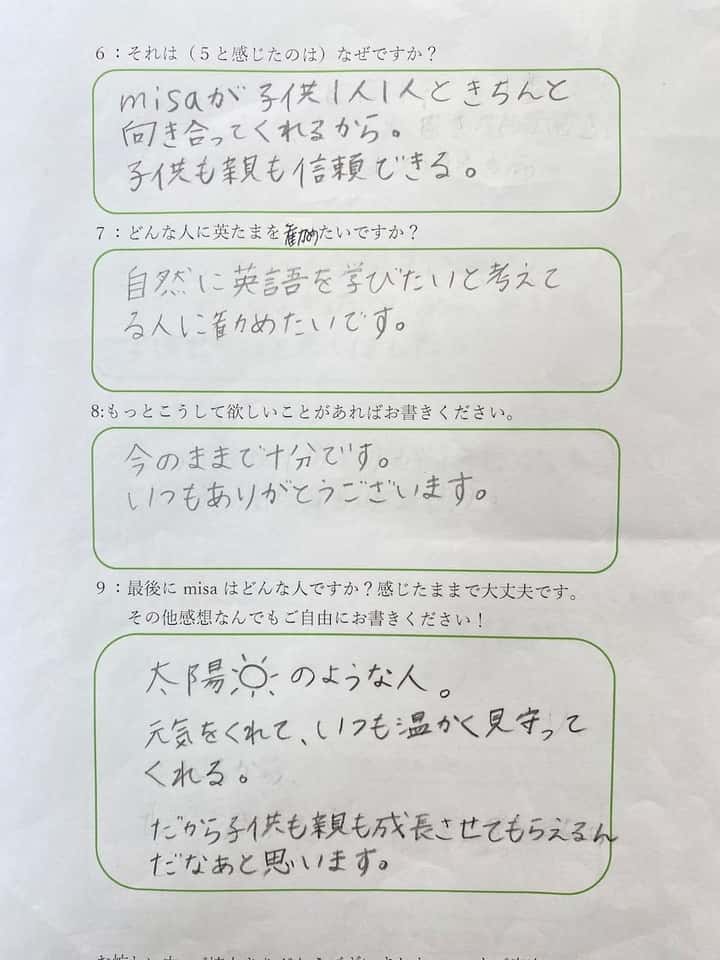 6：それは（5と感じたのは）なぜですか？
misaが子供1人1人ときちんと
向き合ってくれるから。
子供も親も信頼できる。
7：どんな人に英たまを勧めたいですか？
自然に英語を学びたいと考えて
る人に勧めたいです。
8:もっとこうして欲しいことがあればお書きください。
今のままで十分です。
いつもありがとうございます。
9：最後に misa はどんな人ですか？感じたままで大丈夫です。
その他感想なんでもご自由にお書きください！
太陽のような人。
元気をくれて、いつも温かく見守って
くれる。
だから子供も親も成長させてもらえるん
だなぁと思います。